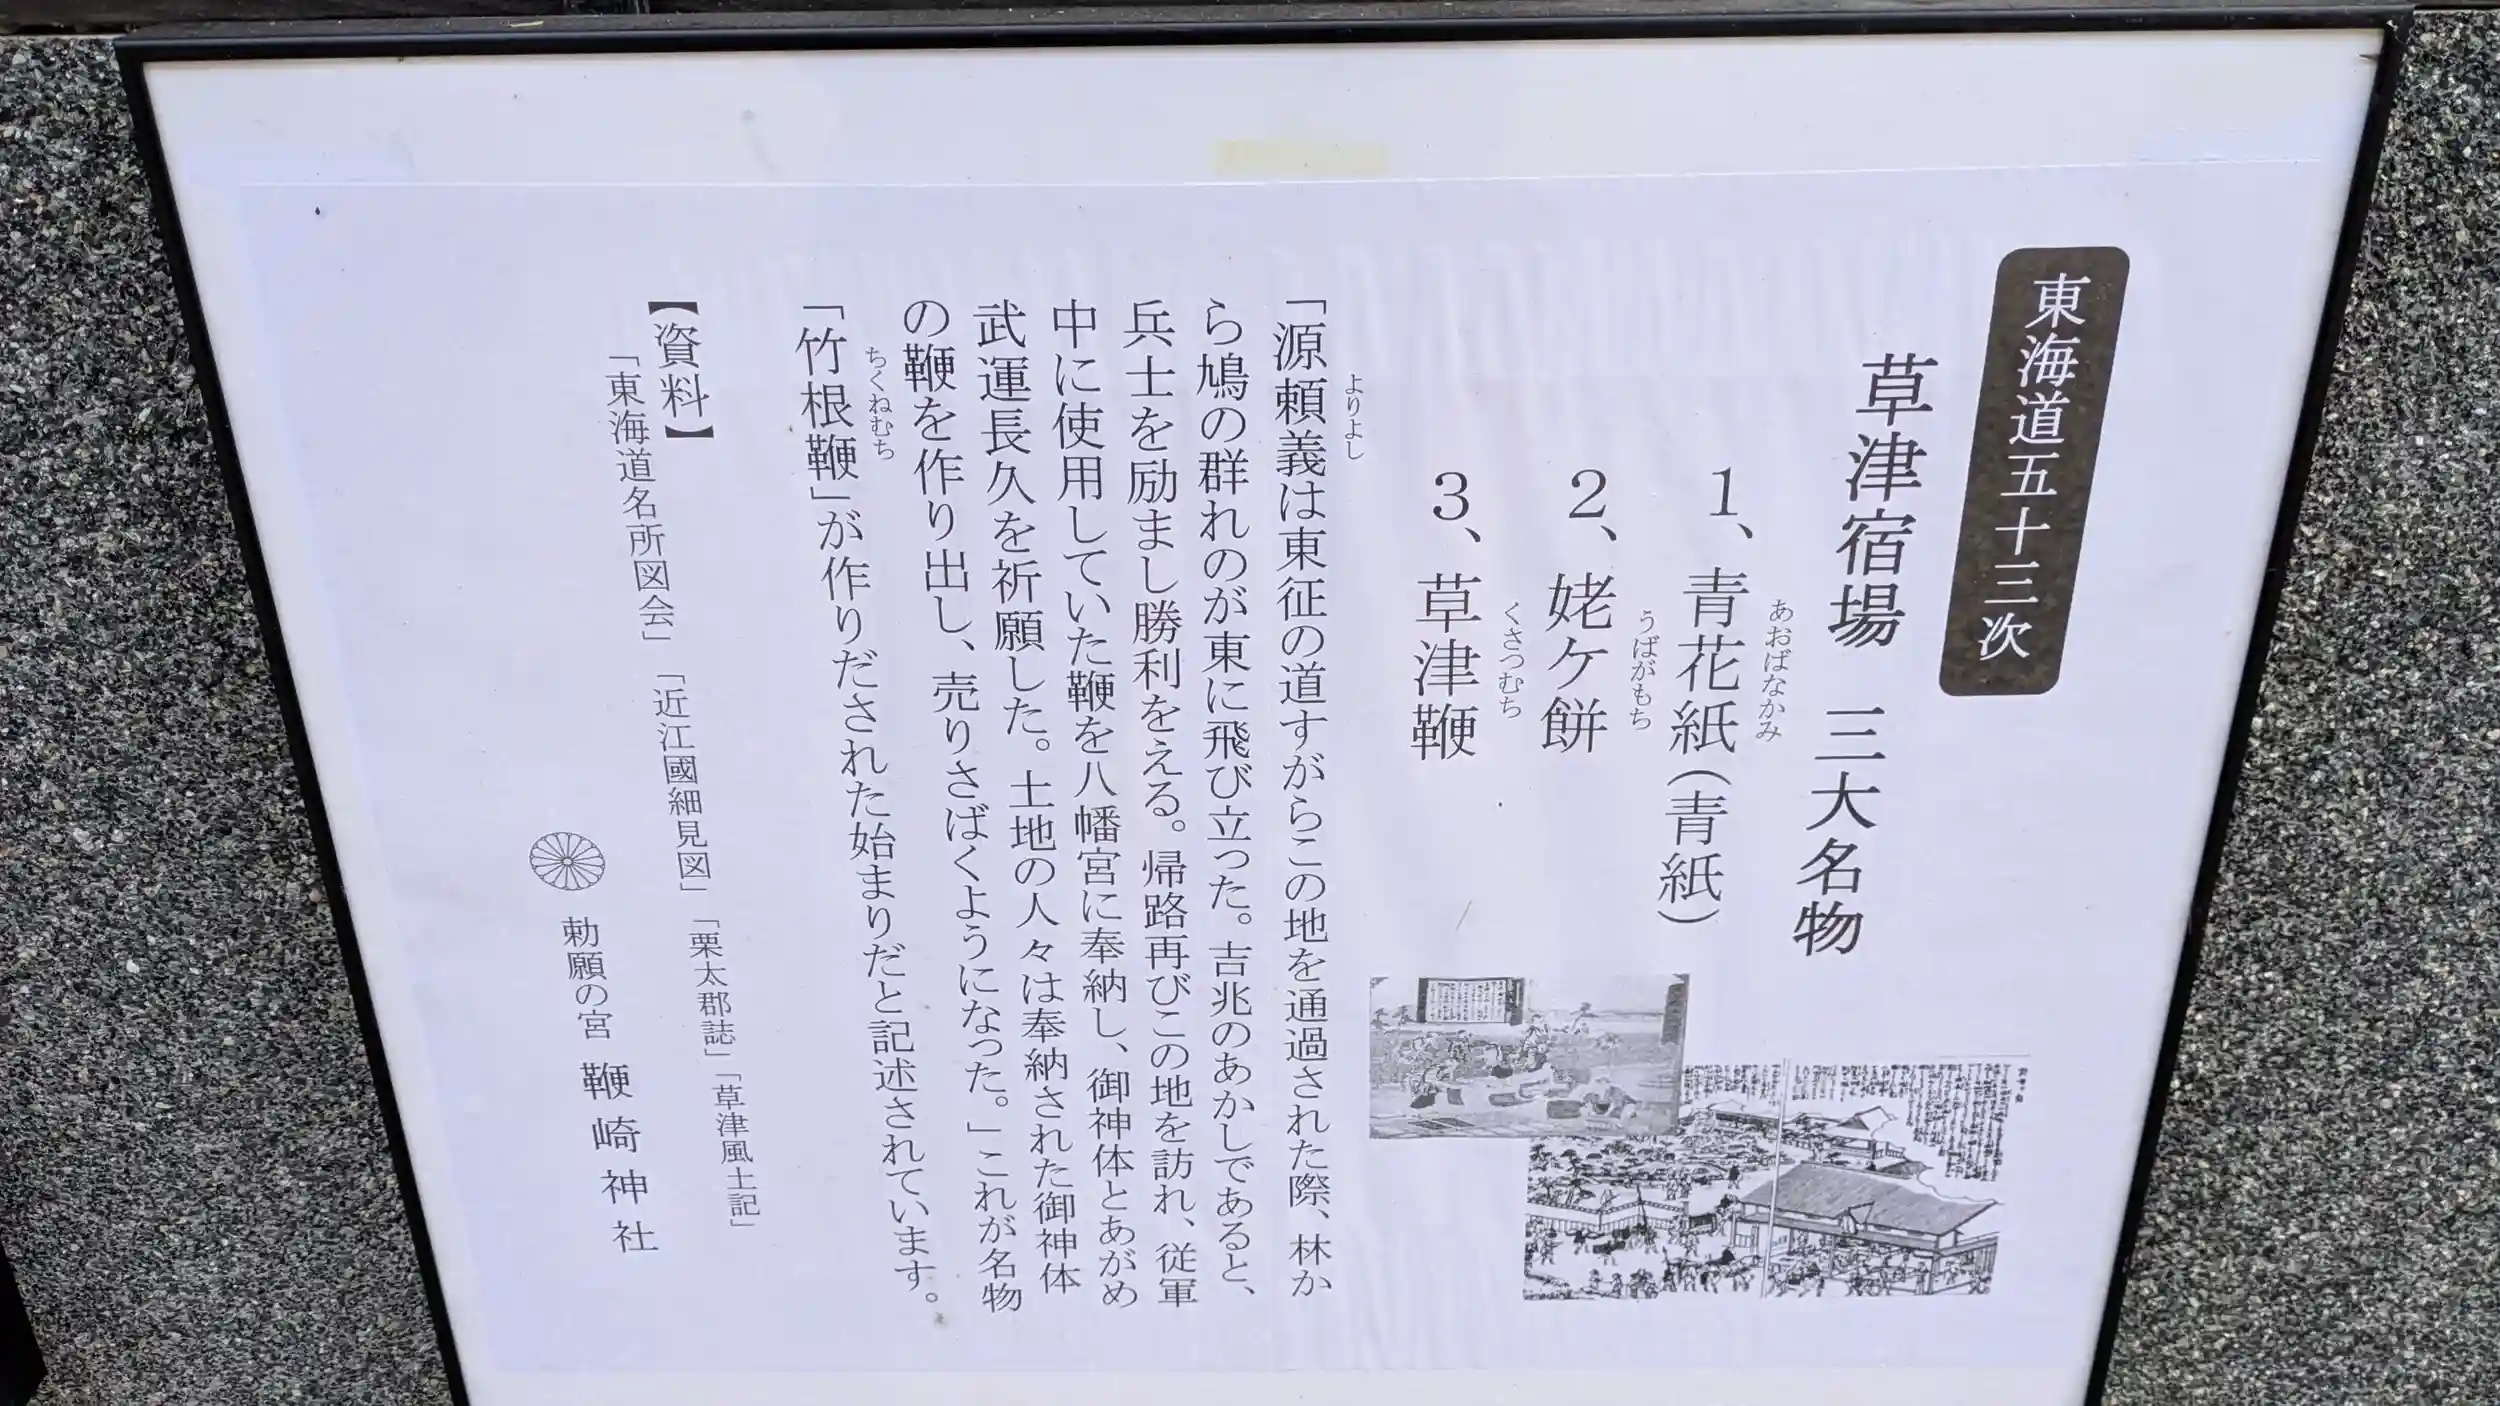 東海道五十三次
草津宿場　三大名物
1、青花紙（青紙）
あおばなかみ
2、姥ケ餅
うばがもち
3、草津鞭
くさつむち
「源頼義は東征の道すがらこの地を通過された際、林か
よりよし
ら鳩の群れのが東に飛び立った。吉兆のあかしであると、
兵士を励まし勝利をえる。帰路再びこの地を訪れ、従軍
中に使用していた鞭を八幡宮に奉納し、御神体とあがめ
武運長久を祈願した。土地の人々は奉納された御神体
の鞭を作り出し、売りさばくようになった。」これが名物
「竹根鞭」が作りだされた始まりだと記述されています。
ちくねむち
【資料】
「東海道名所図会」「近江國細見図」「栗太郡誌」「草津風土記」
勅願の宮　鞭崎神社